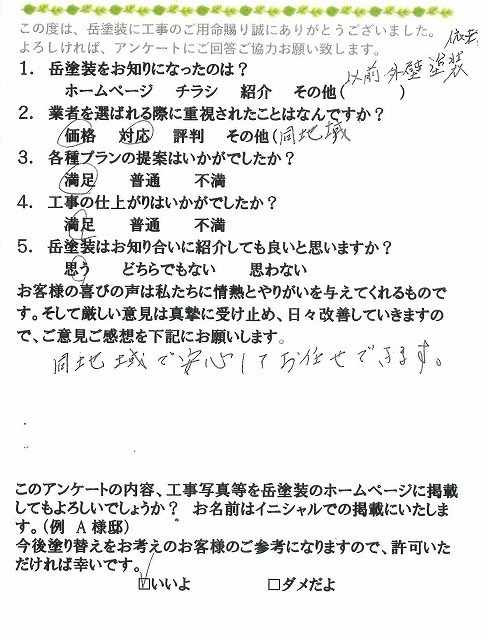 この度は、岳塗装に工事のご用命賜り誠にありがとうございました。
よろしければ、アンケートにご回答ご協力お願い致します。
1. 岳塗装をお知りになったのは?
ホームページ チラシ 紹介 その他( 以前外壁塗装 )
2. 業者を選ばれる際に重視されたことはなんですか?
価格 対応 評判 その他( 同地域
3. 各種プランの提案はいかがでしたか?
満足 普通 不満
4. 工事の仕上がりはいかがでしたか?
満足 普通 不満
5. 岳塗装はお知り合いに紹介しても良いと思いますか?
思う どちらでもない 思わない
お客様の喜びの声は私たちに情熱とやりがいを与えてくれるもので
す。そして厳しい意見は真摯に受け止め、日々改善していきますの
で、ご意見ご感想を下記にお願いします。
同地域で安心してお任せできます。
このアンケートの内容、工事写真等を岳塗装のホームページに掲載
してもよろしいでしょうか? お名前はイニシャルでの掲載にいたしま
す。(例 A 様邸)
今後塗り替えをお考えのお客様のご参考になりますので、許可いた
だければ幸いです。
☑いいよ □ダメだよ